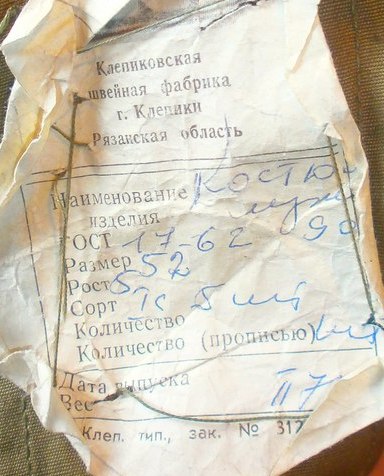 Клепиковская
швейная фабрика
г. Клепики
Рязанская область
Наименование Костю
изделия муж
ОСТ 17-62
Размер 52
Рост 5
Сорт Iс 5 шт
Количество
Количество (прописью)
Дата выпуска II 7
Вес
Клеп. тип., зак. № 312